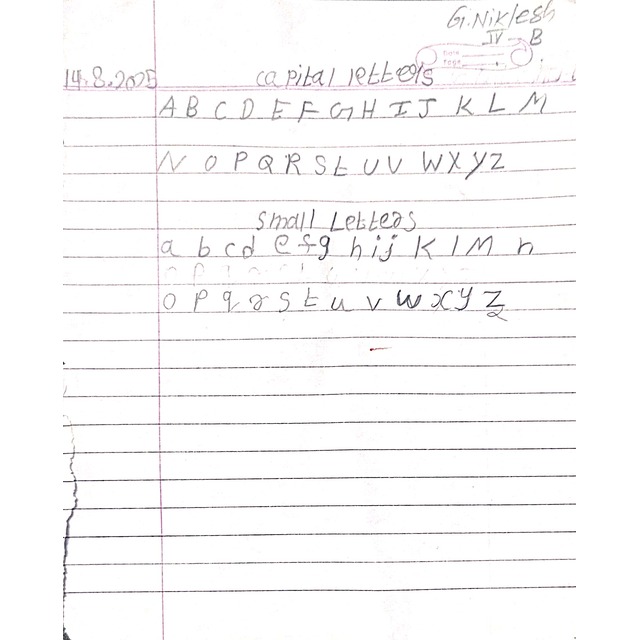 G.Niklesh
IV - B
Date
Page
14.8.2025 capital letters
A B C D E F G H I J K L M
N O P Q R S t U V W X Y Z
small Letters
a b c d e f g h i j K l M n
o p q r s t u v w x y z